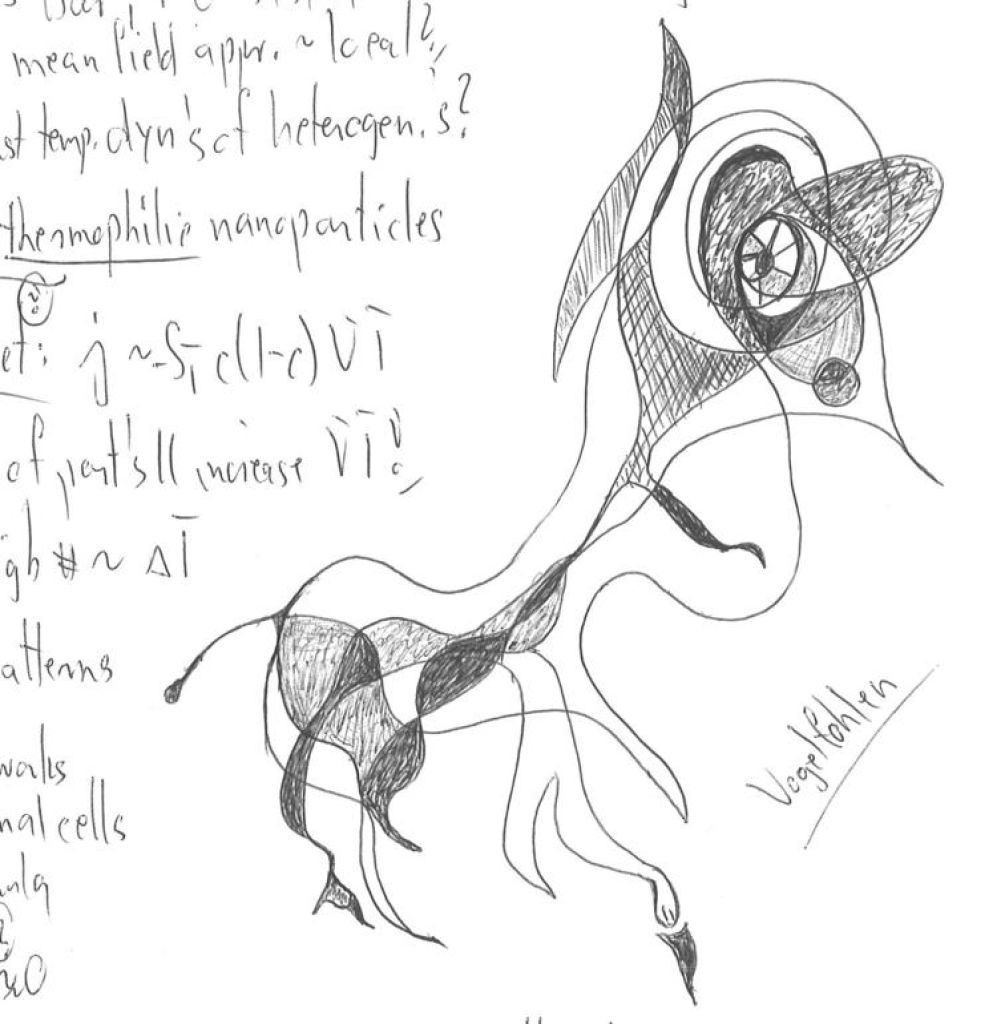 mean field appr. ~ local?,
st temp. dyn's of heterogen.s?
thermophilic nanoparticles
et: j ~ -S_T c(1-c) ∇T
of part's || increase ∇T?,
igh # ~ ΔT
atterns
works
nal cells
Vogelfohlen